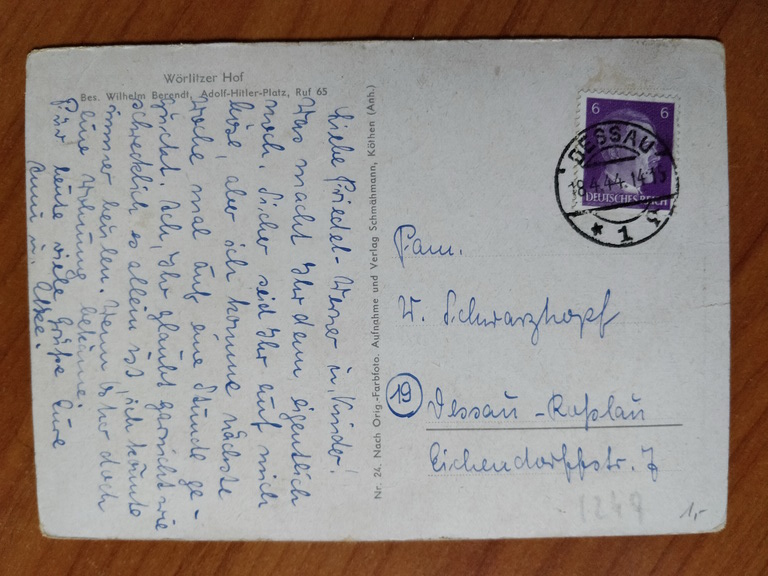 Wörlitzer Hof
Bes. Wilhelm Berendt, Adolf-Hitler-Platz, Ruf 65
Liebe Friedel-Werner u. Kinder!
Was macht Ihr denn eigentlich
noch. Sicher seid Ihr auf mich
böse, aber ich komme nächste
Woche mal auf eine Stunde ge-
rückt. Ach, Ihr glaubt gar nicht wie
schrecklich es allein ist, ich könnte
immer heulen. Wenn nur doch
eine Wohnung bekäme.
Für heute viele Grüße Eure
u.
Nr. 24. Nach Orig.-Farbfoto. Aufnahme und Verlag Schmähmann, Köthen (Anh.)
6 6
DEUTSCHES REICH
DESSAU
18.4.44.14-15
* 1
Fam.
W. Schwarzkopf
19 Dessau-Roßlau
Eichendorffstr. 7
1249
1,-